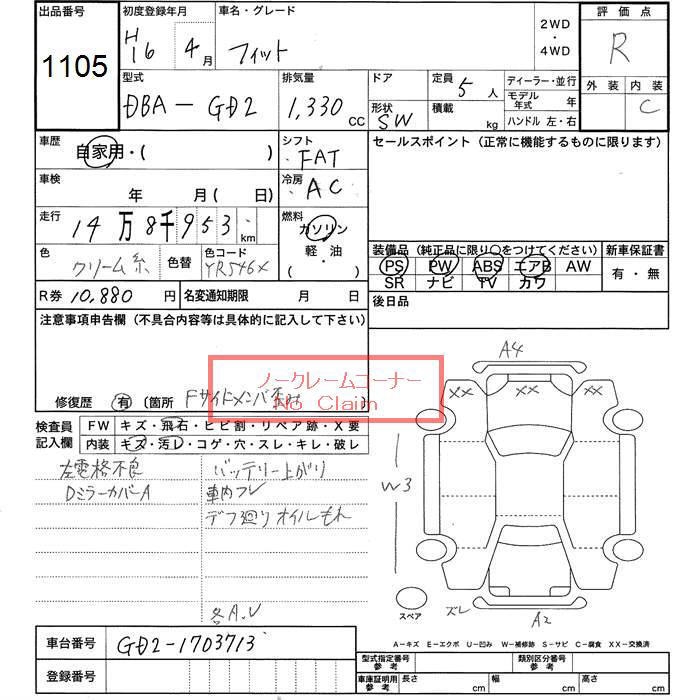 出品番号
1105
初度登録年月
H16 4月
車名・グレード
フィット
2WD
・
4WD
評価点
R
外装 内装
C
型式
DBA-GD2
排気量
1,330 CC
ドア
形状
SW
定員
5人
積載
kg
ディーラー・並行
モデル年式 年
ハンドル 左・右
車歴
自家用・( )
シフト
FAT
車検
年 月( 日)
冷房
AC
走行
14万8千953km
燃料
ガソリン
軽・油
( ・ )
色
クリーム系
色替
色コード
YR546X
R券 10,880円
名変通知期限 月 日
セールスポイント(正常に機能するものに限ります)
装備品(純正品に限り〇をつけてください)
PS PW ABS エアB AW
SR ナビ TV カワ
新車保証書
有・無
後日品
注意事項申告欄(不具合内容等は具体的に記入して下さい)
修復歴 有 〔箇所 Fサイドメンバ
ノークレームコーナー
No Claim
検査員
記入欄
FW キズ・飛石・ヒビ割・リペア跡・X要
内装 キズ・汚レ・コゲ・穴・スレ・キレ・破レ
左電格不良
DミラーカバーA
バッテリー上がり
車内フレ
デフ廻りオイルもれ
各A.U
A4
XX XX XX
W3
スペア
ズレ
A2
A-キズ E-エクボ U-凹み W-補修跡 S-サビ C-腐食 XX-交換済
車台番号 GD2-1703713
登録番号
型式指定番号
参考
類別区分番号
参考
車庫証明用
参考
長さ cm
幅 cm
高さ cm